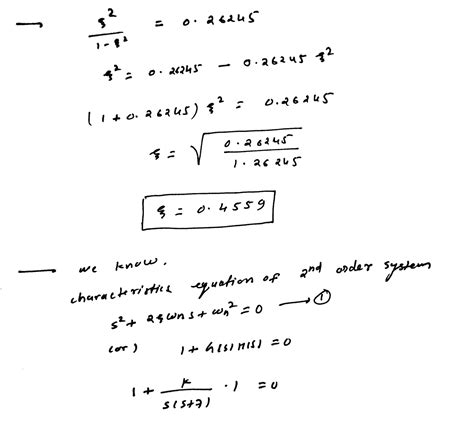 → ξ² / (1-ξ²) = 0.26245
ξ² = 0.26245 - 0.26245 ξ²
(1+0.26245) ξ² = 0.26245
ξ = √(0.26245 / 1.26245)
ξ = 0.4559
→ we know.
characteristics equation of 2nd order system
s² + 2ξωns + ωn² = 0 → ①
(or) 1 + G(s)H(s) = 0
1 + K / s(s+7) · 1 = 0